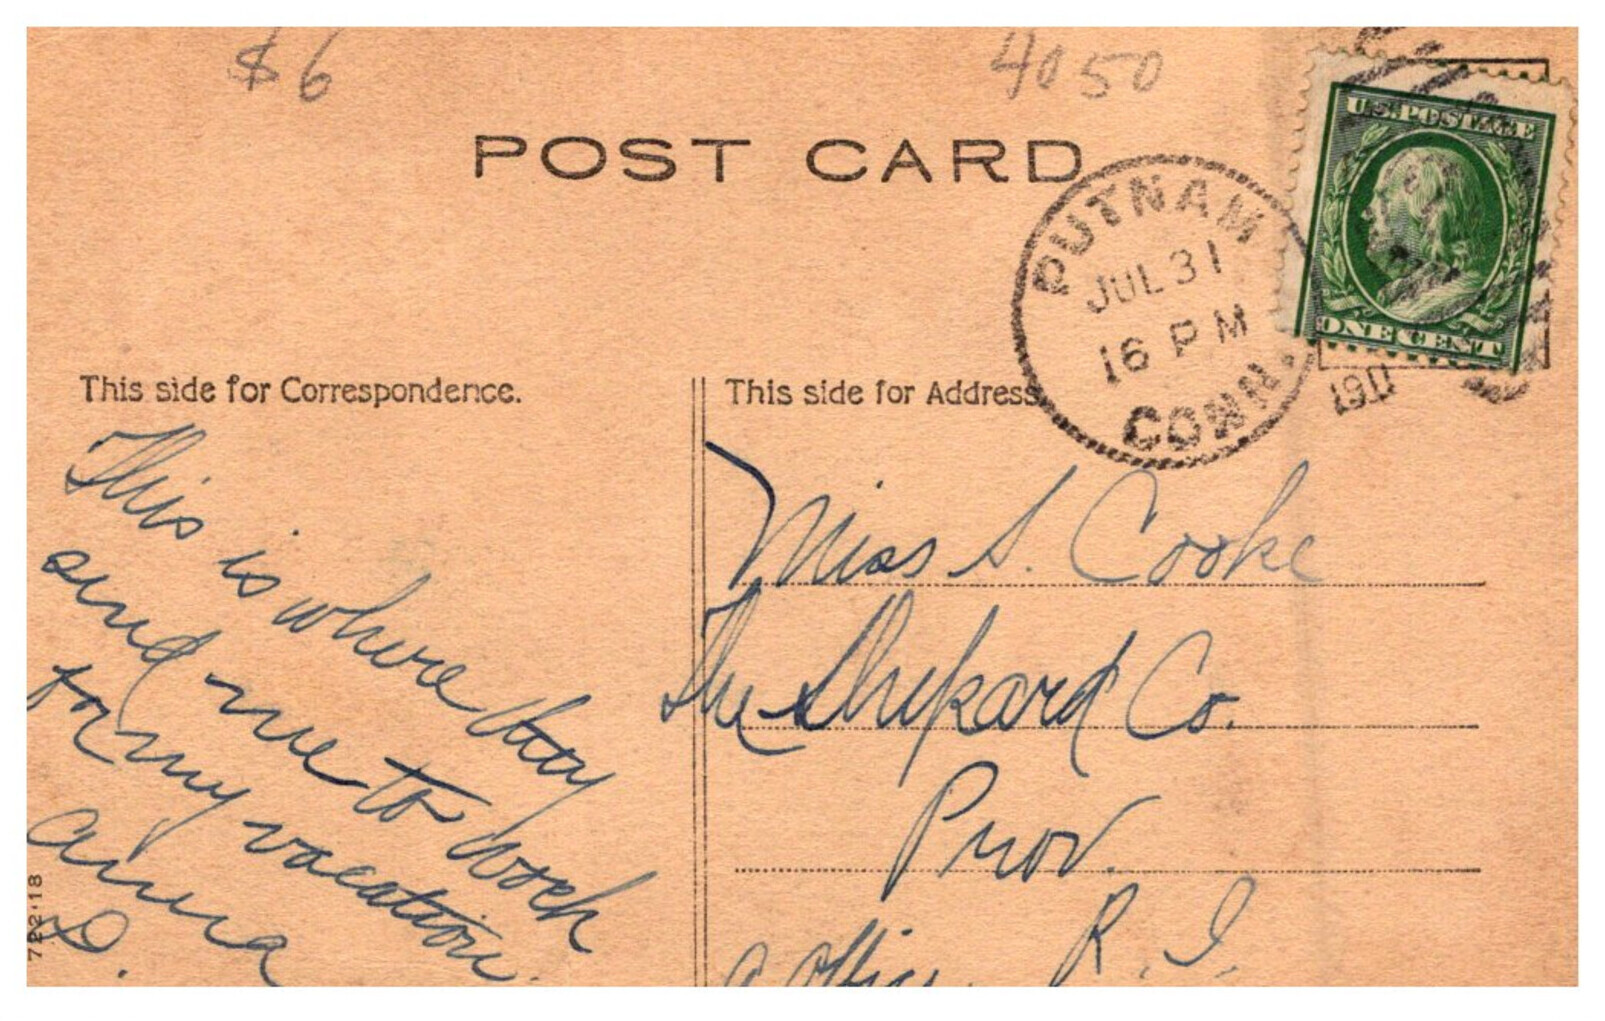 $6
4050
POST CARD
U.S. POSTAGE
ONE CENT
PUTNAM
JUL 31
16 PM
CONN.
This side for Correspondence.
This is where they
send me to work
for my vacation.
Anna
D.
722·18
This side for Address.
Miss S. Cooke
The Shepard Co.
Prov.
R. I.
Office